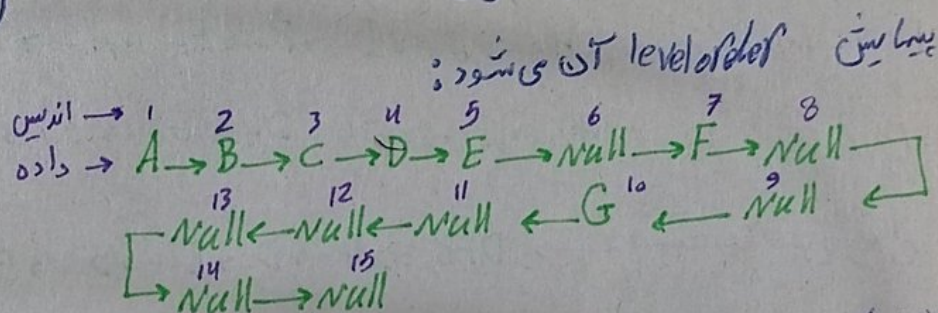 پیمایش levelorder آن می‌شود:
اندیس → 1 2 3 4 5 6 7 8
داده → A → B → C → D → E → Null → F → Null
13 12 11 10 9
Null ← Null ← Null ← G ← Null
14 15
Null → Null